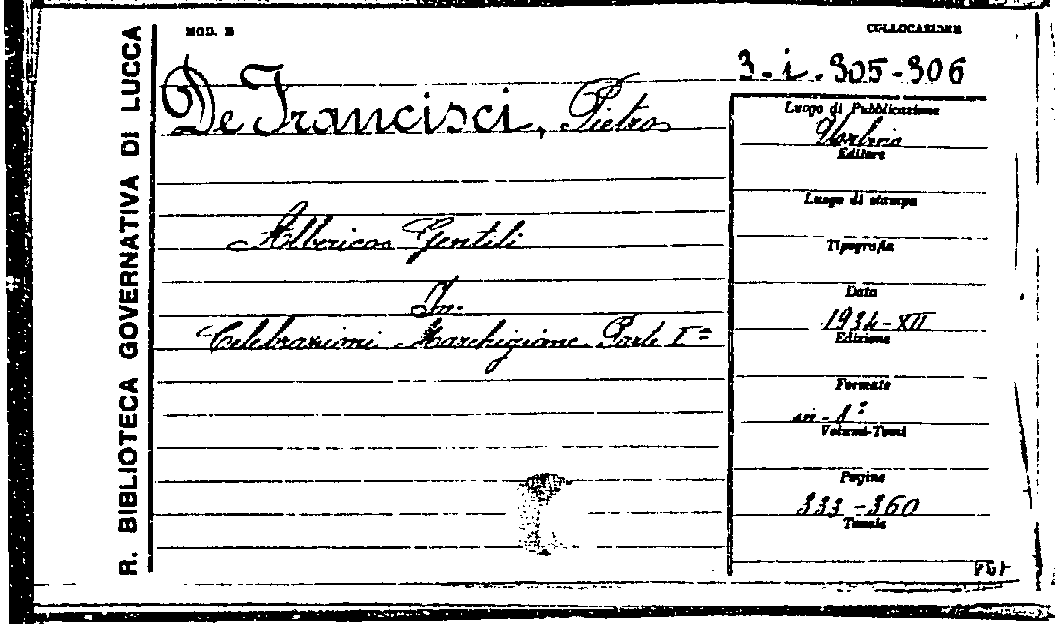 R. BIBLIOTECA GOVERNATIVA DI LUCCA
MOD. B
COLLOCAZIONE
3-i-305-306
De Francisci, Pietro
Alberico Gentili
In:
Celebrazioni Marchigiane Parte Iª
Luogo di Pubblicazione
Urbino
Editore
Luogo di stampa
Tipografia
Data
1934-XII
Edizione
Formato
in-8°
Volumi-Tomi
Pagine
333-360
Tavole